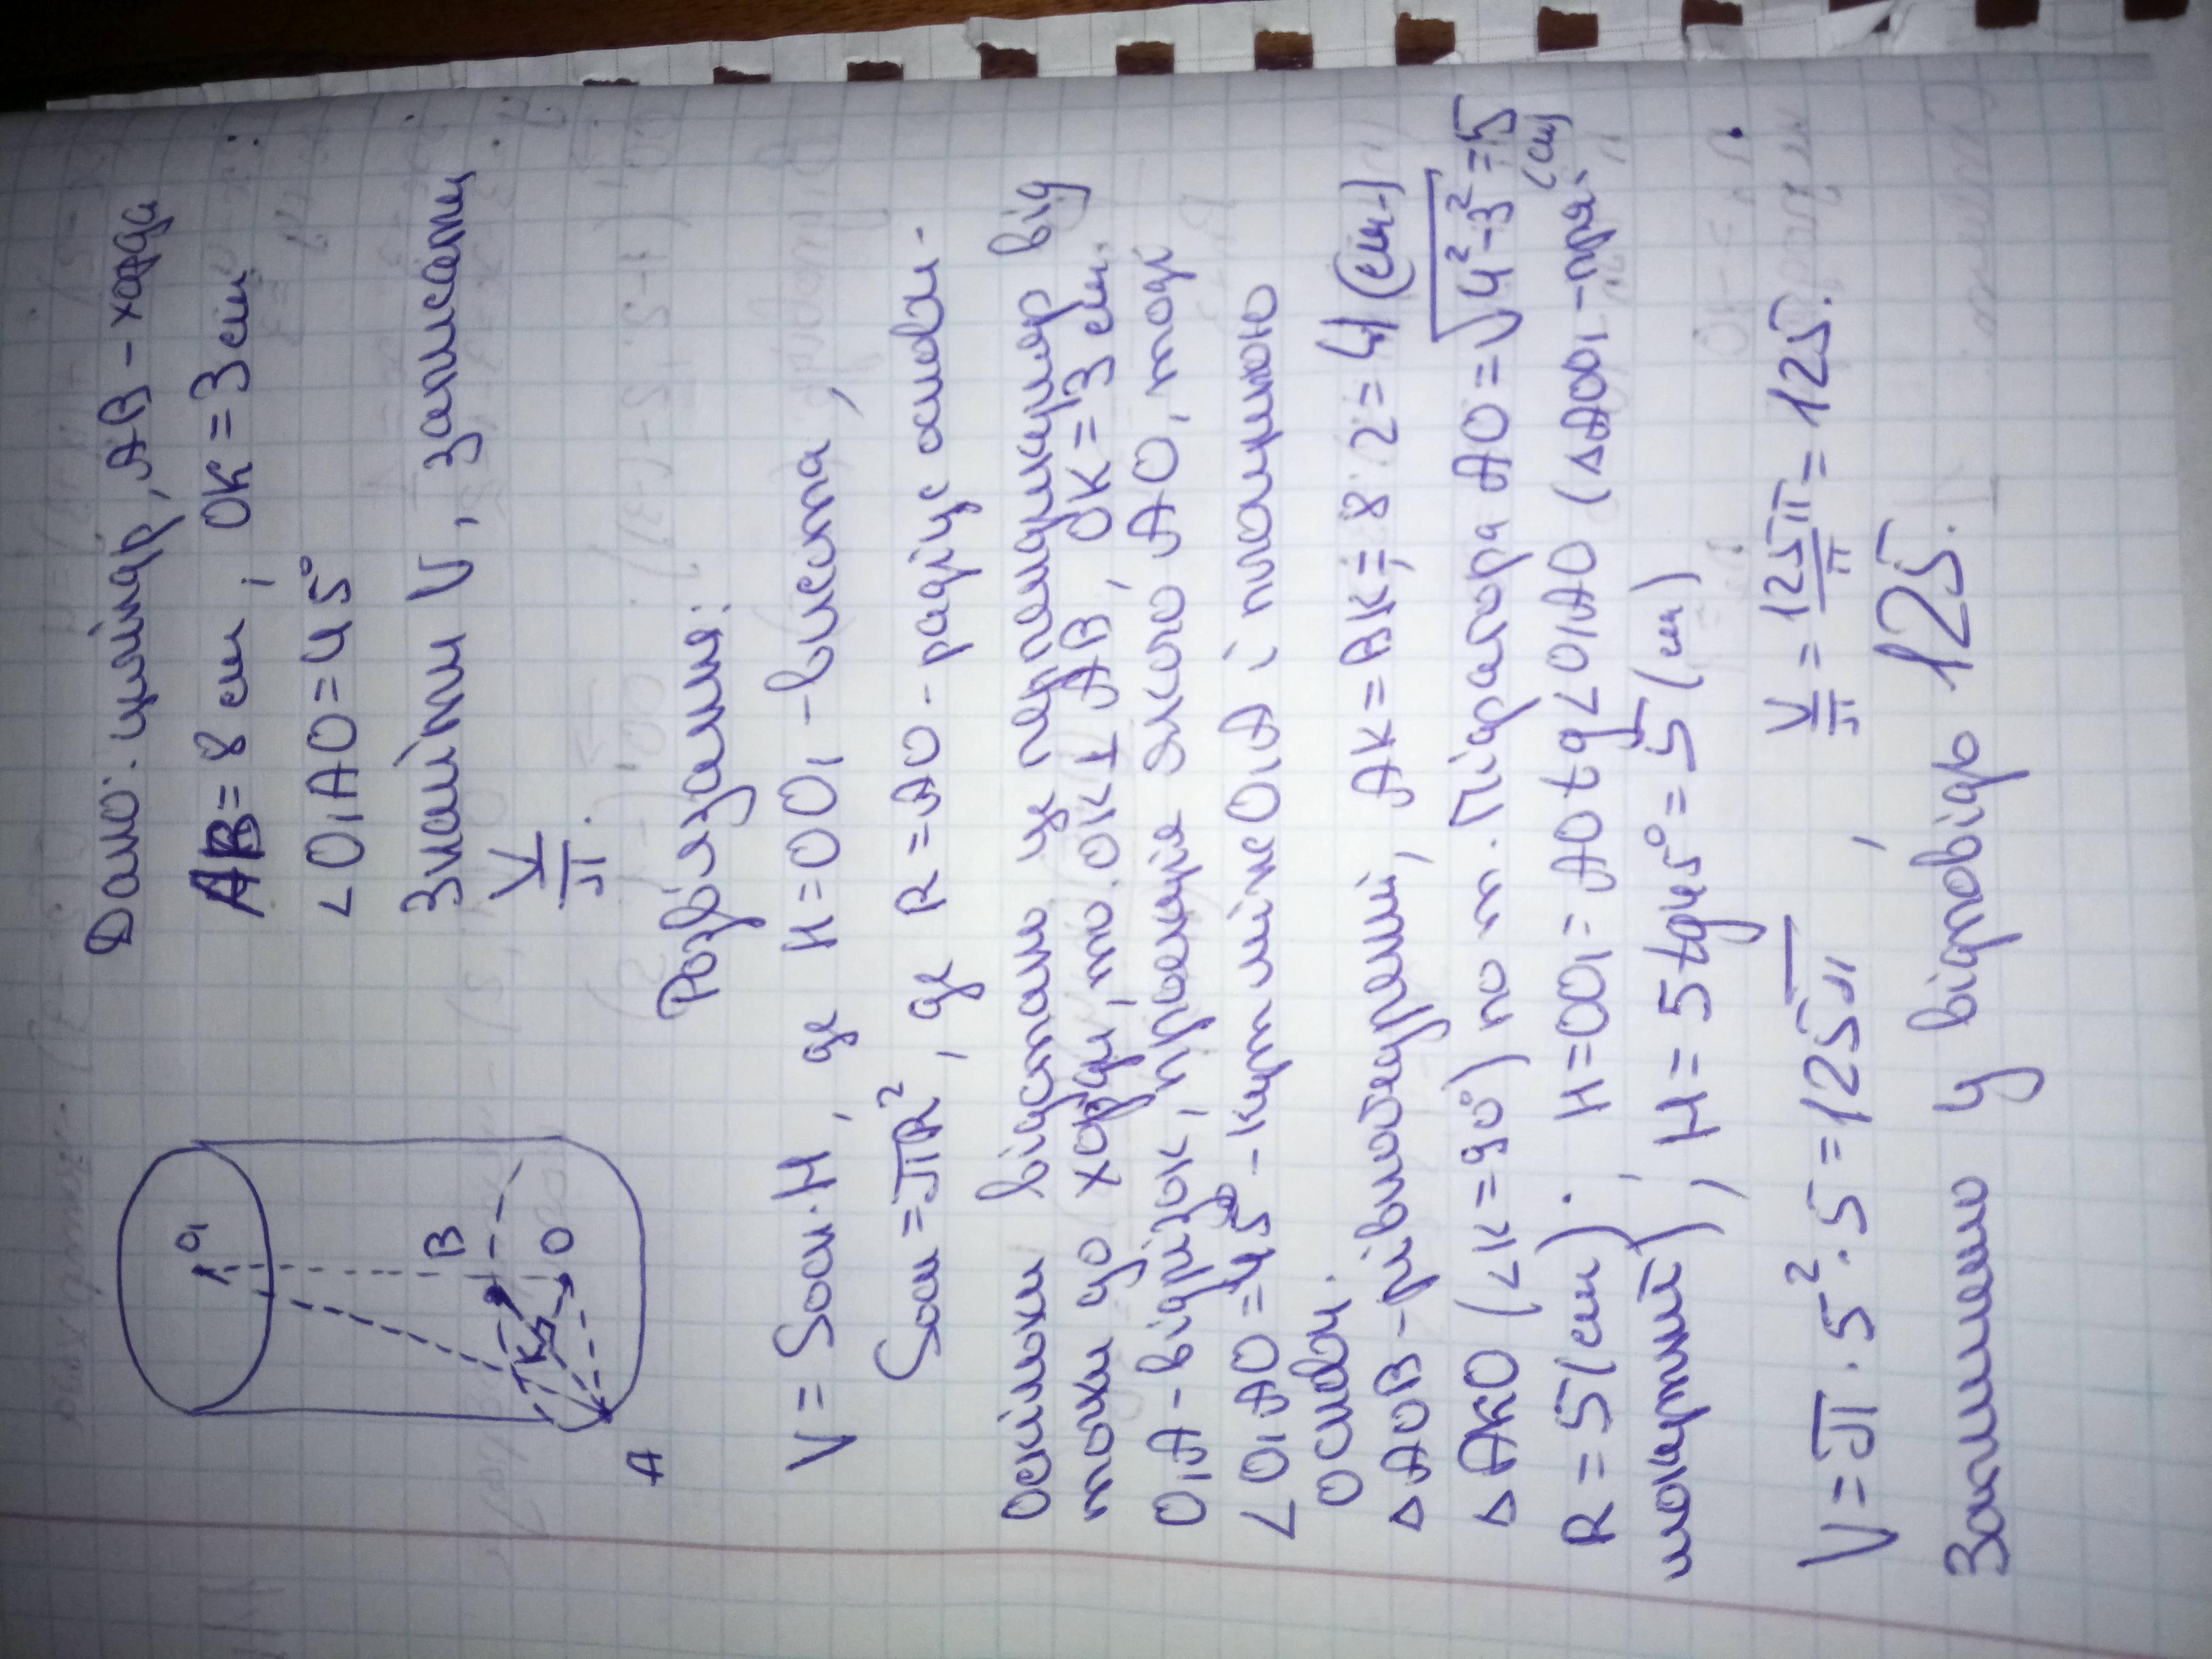 Дано: циліндр, AB - хорда
AB = 8 см; OK = 3 см
∠O₁AO = 45°
Знайти V, записати
V/π.
Розв'язання:
V = Sосн·H, де H = OO₁ - висота,
Sосн = πR², де R = AO - радіус основи.
Оскільки відстань це перпендикуляр від
точки до хорди, то OK ⊥ AB, OK = 3 см.
O₁A - відрізок, проекція якого AO, тоді
∠O₁AO = 45° - кут між O₁A і площиною
основи.
△AOB - рівнобедрений, AK = BK = 8:2 = 4 (см)
△AKO (∠K = 90°) по т. Піфагора AO = √4²-3² = 5 (см)
R = 5 (см). H = OO₁ = AO tg∠O₁AO (△AOO₁ - пря-
мокутний), H = 5 tg45° = 5 (см)
V = π·5²·5 = 125π, V/π = 125π/π = 125.
Запишемо у відповідь 125.
A
B
K
O
O₁